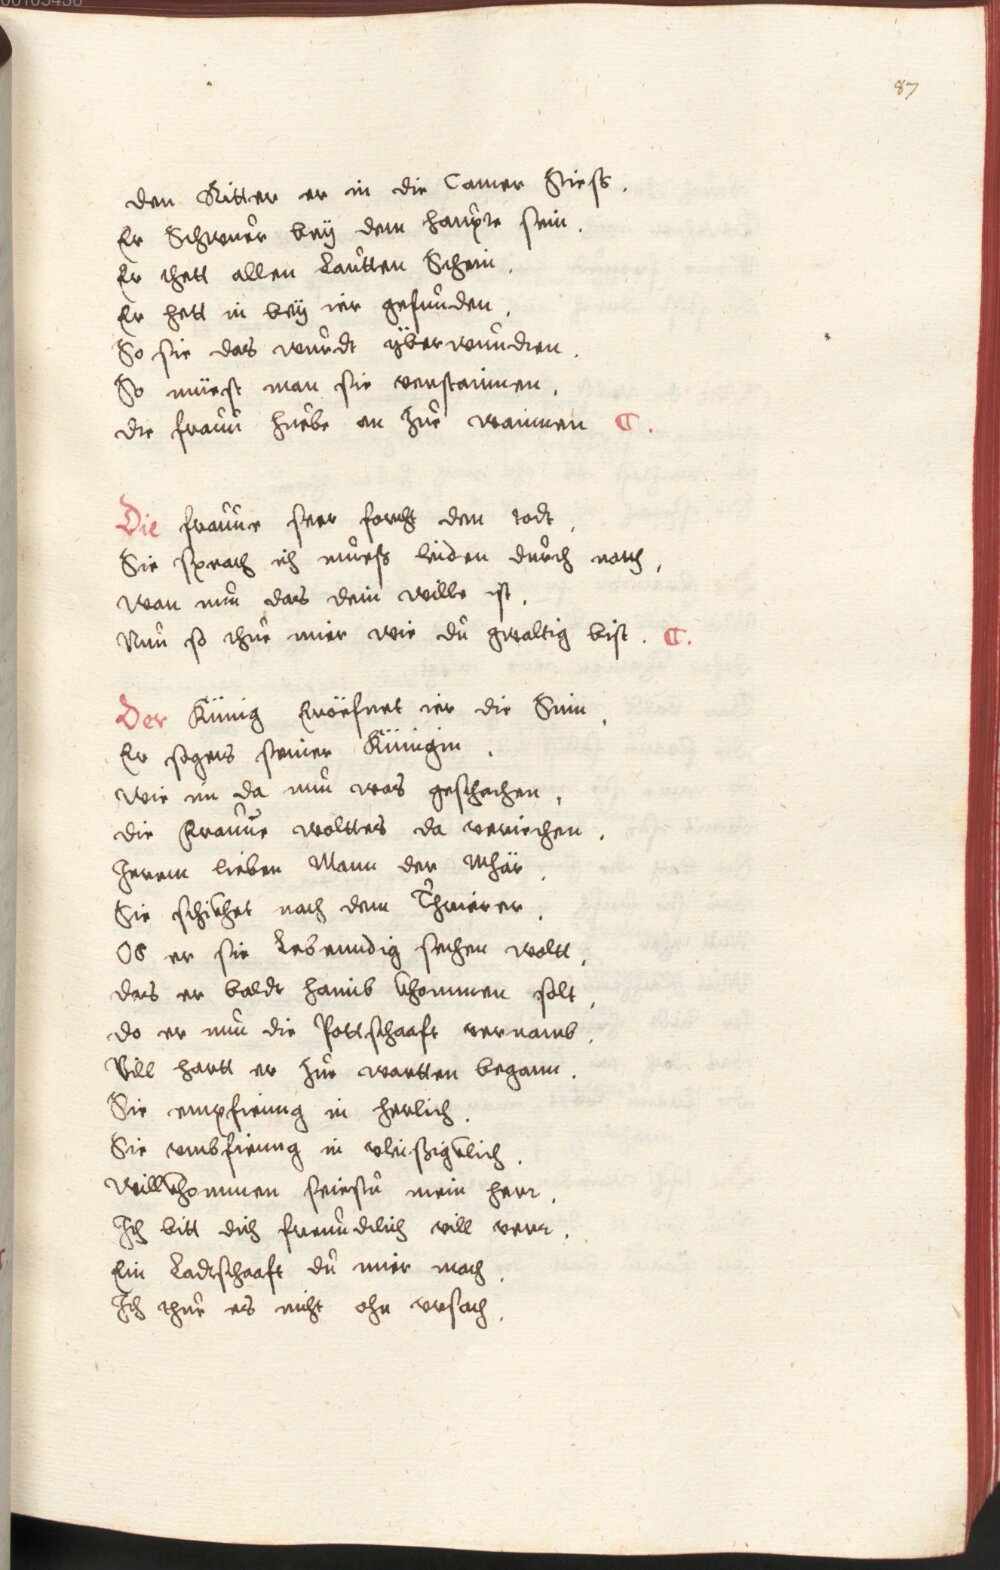 00105438
87
den Ritter er in die Camer Stiess.
Er Schwuer beÿ dem haupte sein.
Er thett allen Lautten Schein.
Er hett in beÿ ier gefunden.
So sie das wurdt ÿberwundten.
So müest man sie verstainnen.
die frauu huebe an Zue wainnen ¶.
Die frauue seer forcht den todt,
Sie sprach ich muess leiden durch noth,
wan nun das dein wille ist,
Nun so thue mier wie du gwaltig bist. ¶.
Der Künig Eröefnet ier die Sinn,
Er sagets seiner Künigin.
wie im da nun was geschechen,
die Frauue wolttes da veriechen.
Jerem lieben Mann der Mhär.
Sie schickhet nach dem Thuierer.
Ob er sie Lebenndig sechen wolt,
das er baldt haimb khommen solt,
do er nun die Pottschaafft vernamb.
Vill hartt er Zue wartten begann.
Sie empfienng in herlich.
Sie umbfienng in vleißigclich.
willkhommen seiestu mein herr.
Ich bitt dich freundtlich vill verr.
Ein Ladtschaafft du mier mach.
Ich thue es nicht ohn ursach.